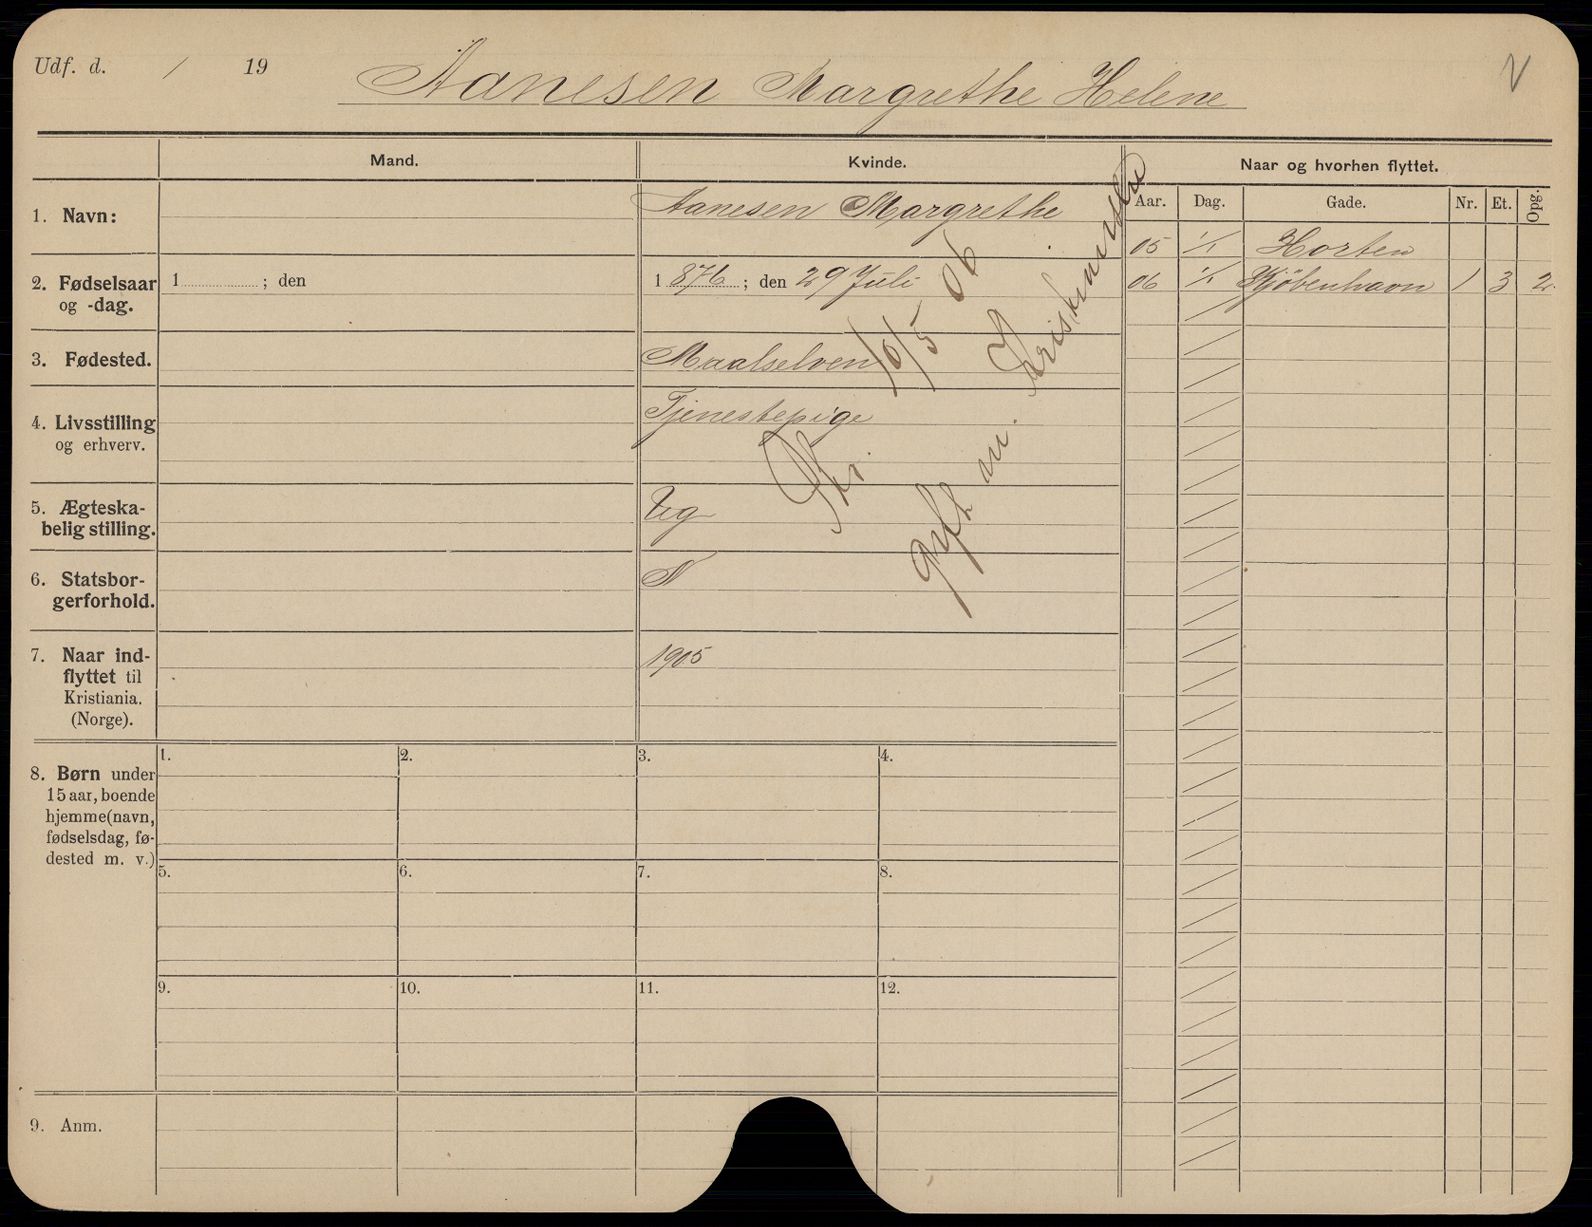 Udf. d. / 19
Aanesen Margrethe Helene
V
Mand.
Kvinde.
Naar og hvorhen flyttet.
Aar. Dag. Gade. Nr. Et. Opg.
1. Navn:
Aanesen Margrethe
05 1/1 Horten
2. Fødselsaar
og -dag.
1 ; den
1876; den 29 Juli
06 1/1 Kjöbenhavn 1 3 2
3. Fødested.
Maalselven
4. Livsstilling
og erhverv.
Tjenestepige
5. Ægteska-
belig stilling.
Ug
6. Statsbor-
gerforhold.
N
7. Naar ind-
flyttet til
Kristiania.
(Norge).
1905
10/5 06
gift m.
8. Børn under
15 aar, boende
hjemme (navn,
fødselsdag, fø-
dested m. v.)
1. 2. 3. 4.
5. 6. 7. 8.
9. 10. 11. 12.
9. Anm.